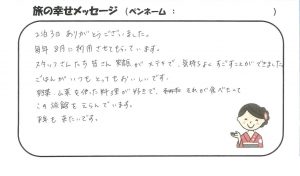 旅の幸せメッセージ (ペンネーム : )
2泊3日 ありがとうございました。
毎年 8月に利用させてもらっています。
スタッフさんたち皆さん 笑顔が ステキで、気持ちよく すごすことができました
ごはんが いつも とっても おいしいです。
野菜、山菜を使った料理が好きで、それが食べたくて
この旅館を えらんでいます。
来年も 来たいです。